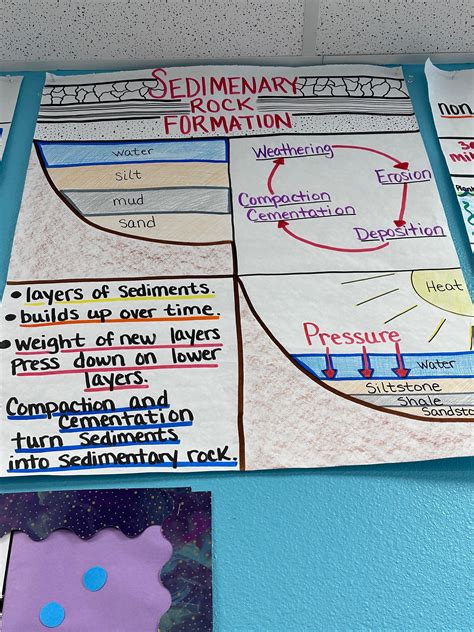 SEDIMENARY
ROCK
FORMATION
water
silt
mud
sand
Weathering
Erosion
Deposition
Compaction
Cementation
• layers of sediments.
• builds up over time.
• weight of new layers
press down on lower
layers.
Compaction and
Cementation
turn sediments
into sedimentary rock.
Heat
Pressure
water
Siltstone
Shale
Sandsto
non